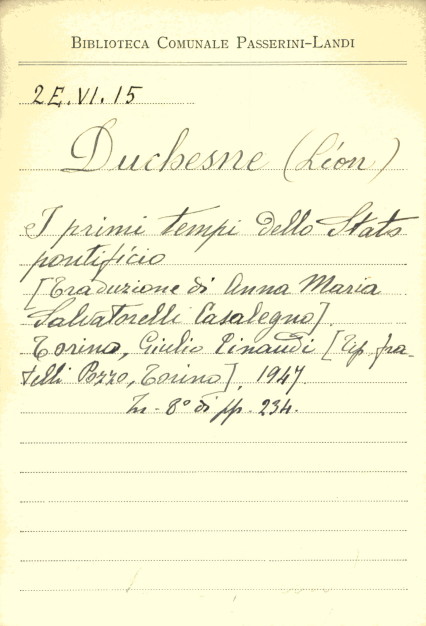 BIBLIOTECA COMUNALE PASSERINI-LANDI
2E.VI.15
Duchesne (Léon)
I primi tempi dello Stato
pontificio
[Traduzione di Anna Maria
Salvatorelli Casalegno].
Torino, Giulio Einaudi [Tip. fra-
telli Pozzo, Torino], 1947
In-8° di pp. 234.